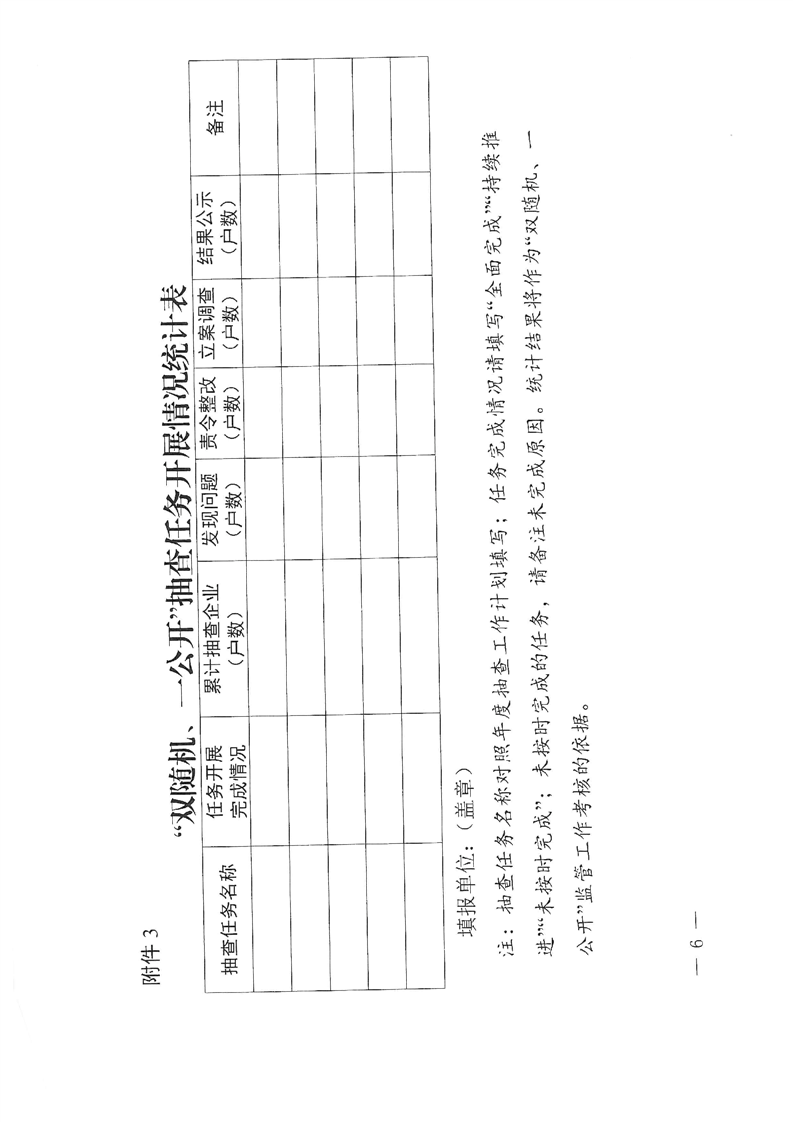 附件 3
“双随机、一公开”抽查任务开展情况统计表
抽查任务名称
任务开展
完成情况
累计抽查企业
（户数）
发现问题
（户数）
责令整改
（户数）
立案调查
（户数）
结果公示
（户数）
备注
填报单位：（盖章）
注：抽查任务名称对照年度抽查工作计划填写；任务完成情况请填写“全面完成”“持续推
进”“未按时完成”；未按时完成的任务，请备注未完成原因。统计结果将作为“双随机、一
公开”监管工作考核的依据。
— 6 —